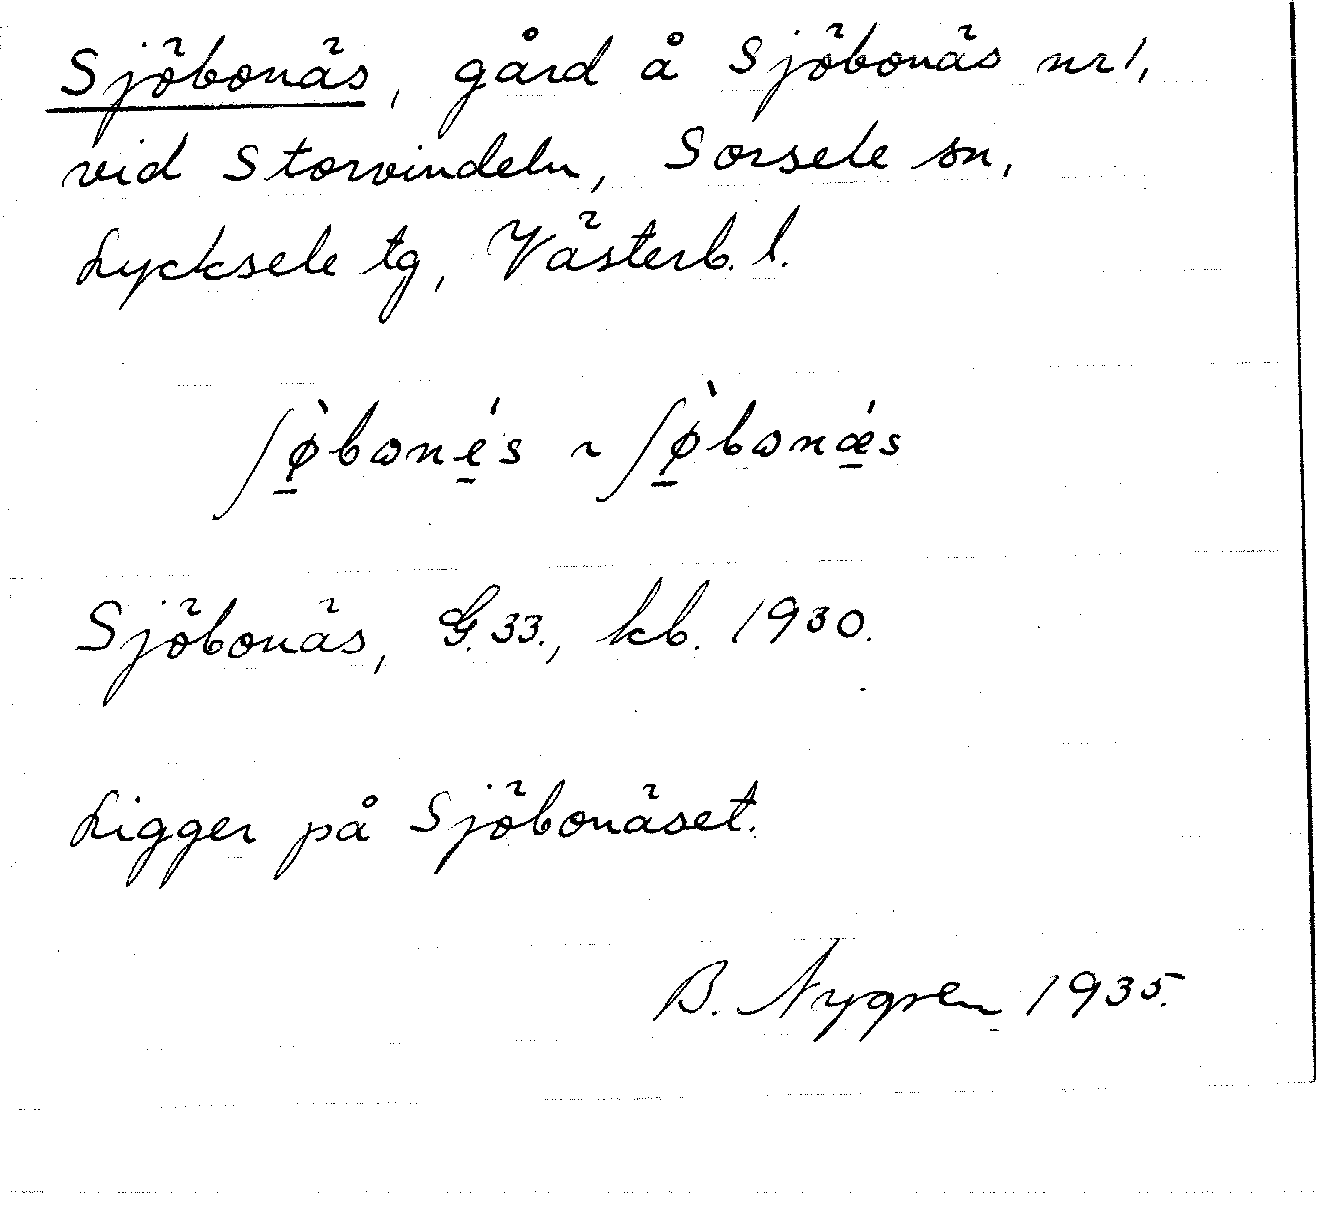 Sjöbonäs, gård å Sjöbonäs nr 1,
vid Storvindeln, Sorsele sn,
Lycksele tg, Västerb. l.
ʃø̱̀bωné̱s ~ ʃø̱̀bωnǽ̱s
Sjöbonäs, G. 33., kb. 1930.
Ligger på Sjöbonäset.
B. Nygren 1935.